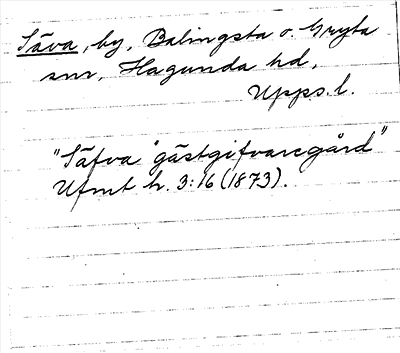 Säva, by, Balingsta o. Gryta
snr, Hagunda hd,
Upps. l.
"Säfva" gästgifvaregård"
Ufmt h. 3:16 (1873).